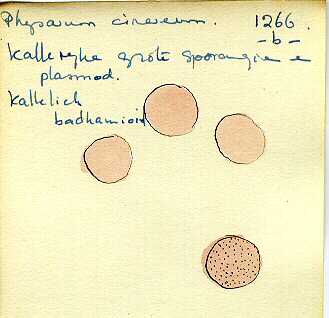 Physarum cinereum. 1266
- b -
Kalkrijke grote sporangiën e
plasmod.
Kalklich
badhamioid